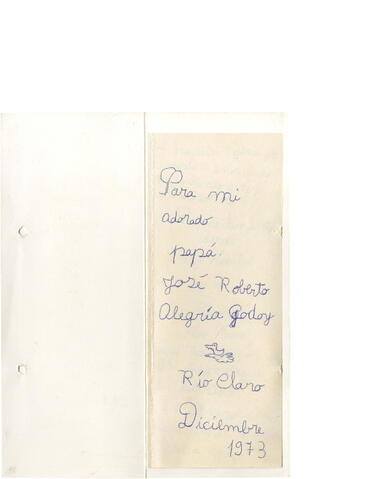 Para mi
adorado
papá.
José Roberto
Alegría Godoy
Río Claro
Diciembre
1973